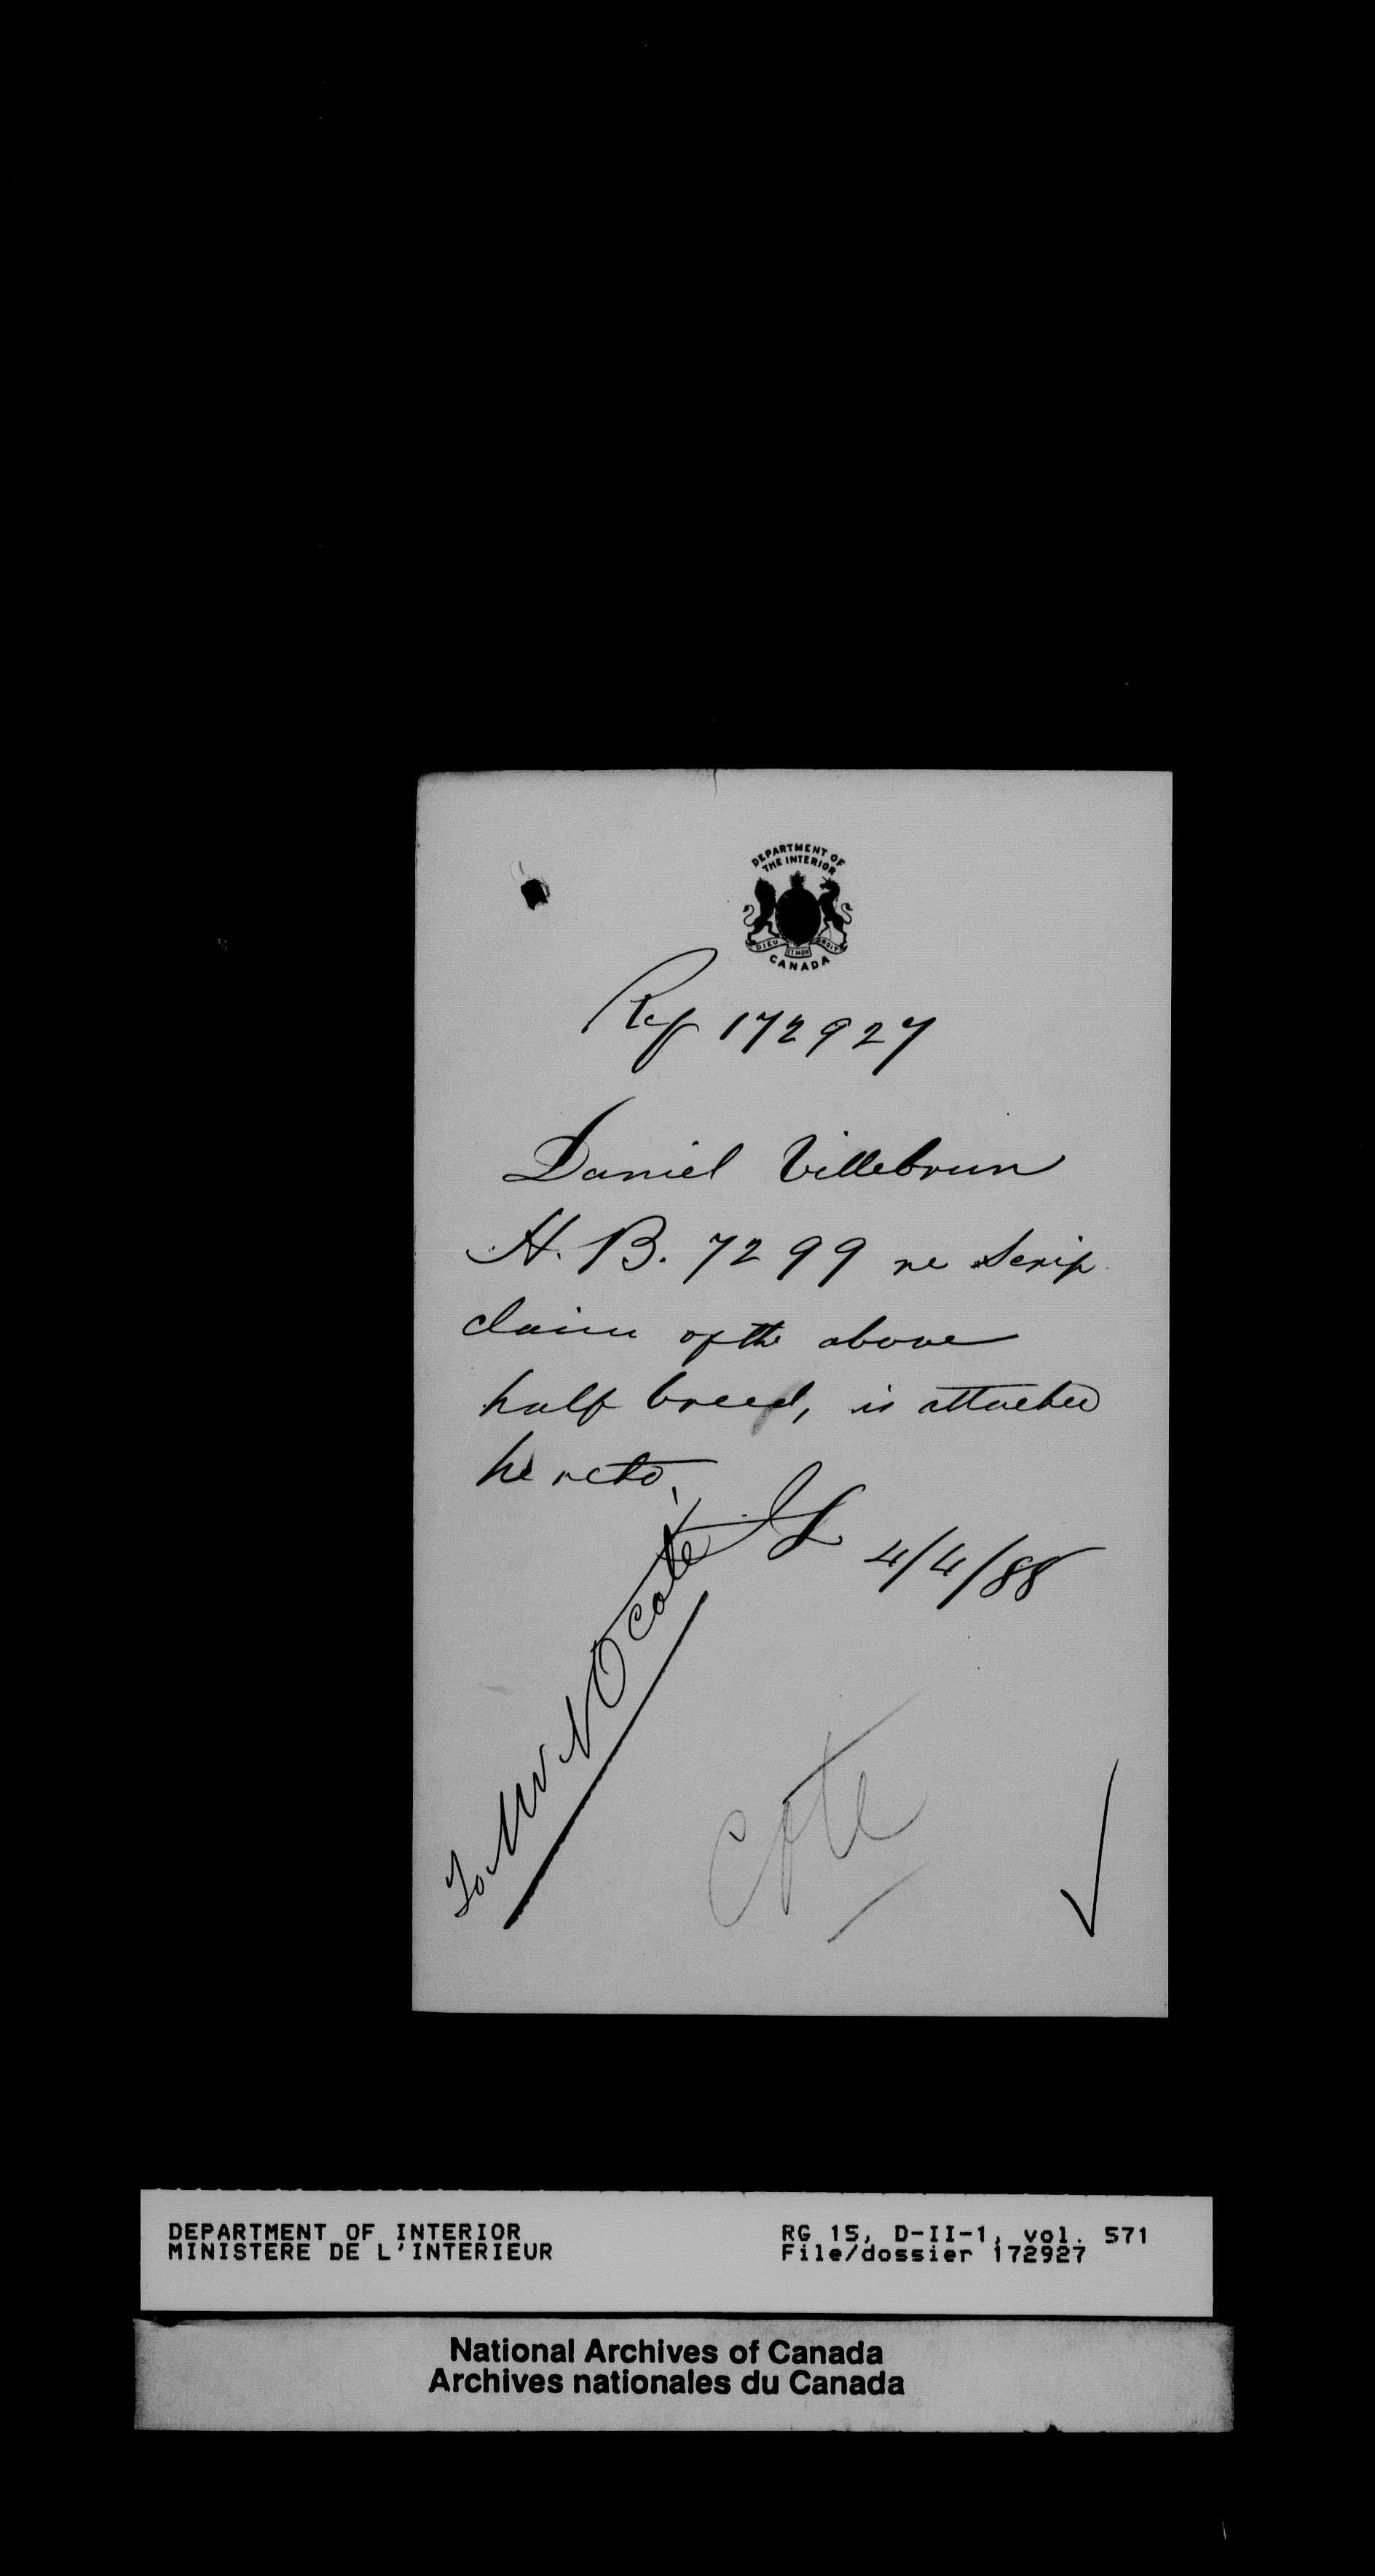 DEPARTMENT OF
THE INTERIOR
DIEU ET MON DROIT
CANADA
Ref 172927
Daniel Villebrun
H. B. 7299 re Scrip
claim of the above
half breed, is attached
hereto.
4/4/88
To Mr N O Coté
Cote
DEPARTMENT OF INTERIOR
MINISTERE DE L'INTERIEUR
RG 15, D-II-1, vol. 571
File/dossier 172927
National Archives of Canada
Archives nationales du Canada